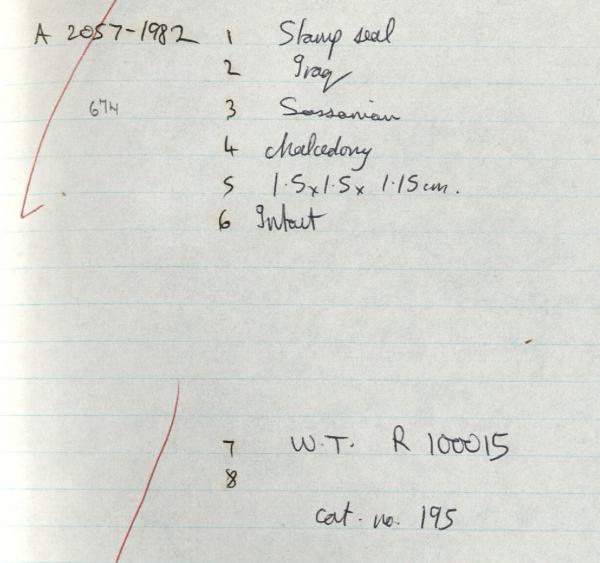 A 2057-1982 1 Stamp seal
2 Iraq
674 3 Sassanian
4 chalcedony
5 1.5x1.5x 1.15cm.
6 Intact
7 W.T. R 100015
8
cat. no. 195